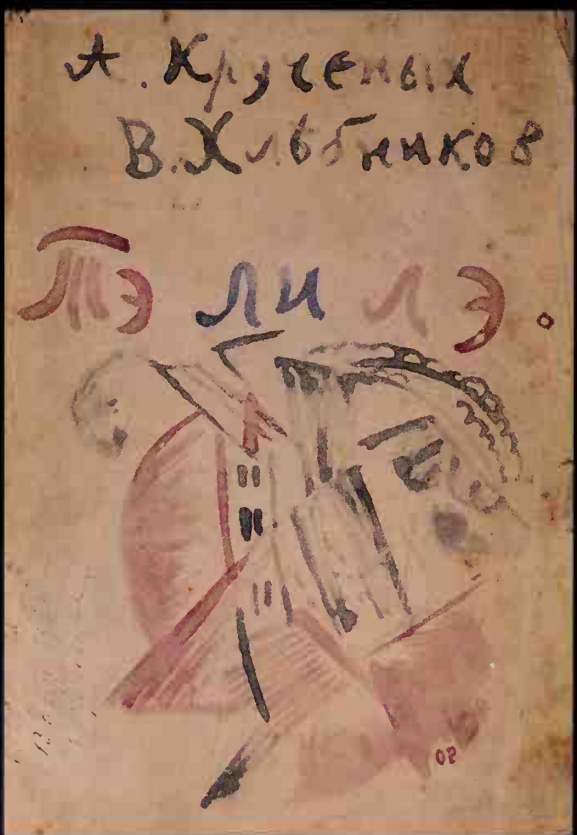 А. Крученых
В. Хлѣбников
Тэ ли лэ.
ОР